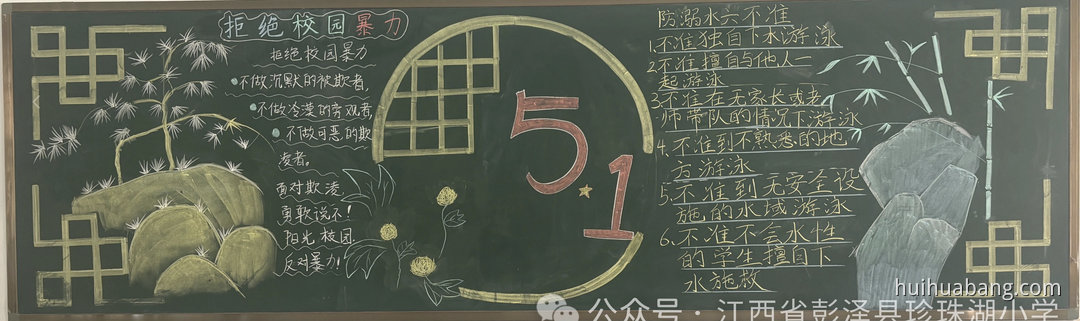 拒绝校园暴力
拒绝校园暴力
不做沉默的被欺者,
不做冷漠的旁观者,
不做可恶的欺
凌者。
面对欺凌
勇敢说不!
阳光校园
反对暴力!
51
防溺水六不准
1.不准独自下水游泳
2.不准擅自与他人一
起游泳
3.不准在无家长或老
师带队的情况下游泳
4.不准到不熟悉的地
方游泳
5.不准到无安全设
施的水域游泳
6.不准不会水性
的学生擅自下
水施救
huihuabang.com
公众号·江西省彭泽县珍珠湖小学